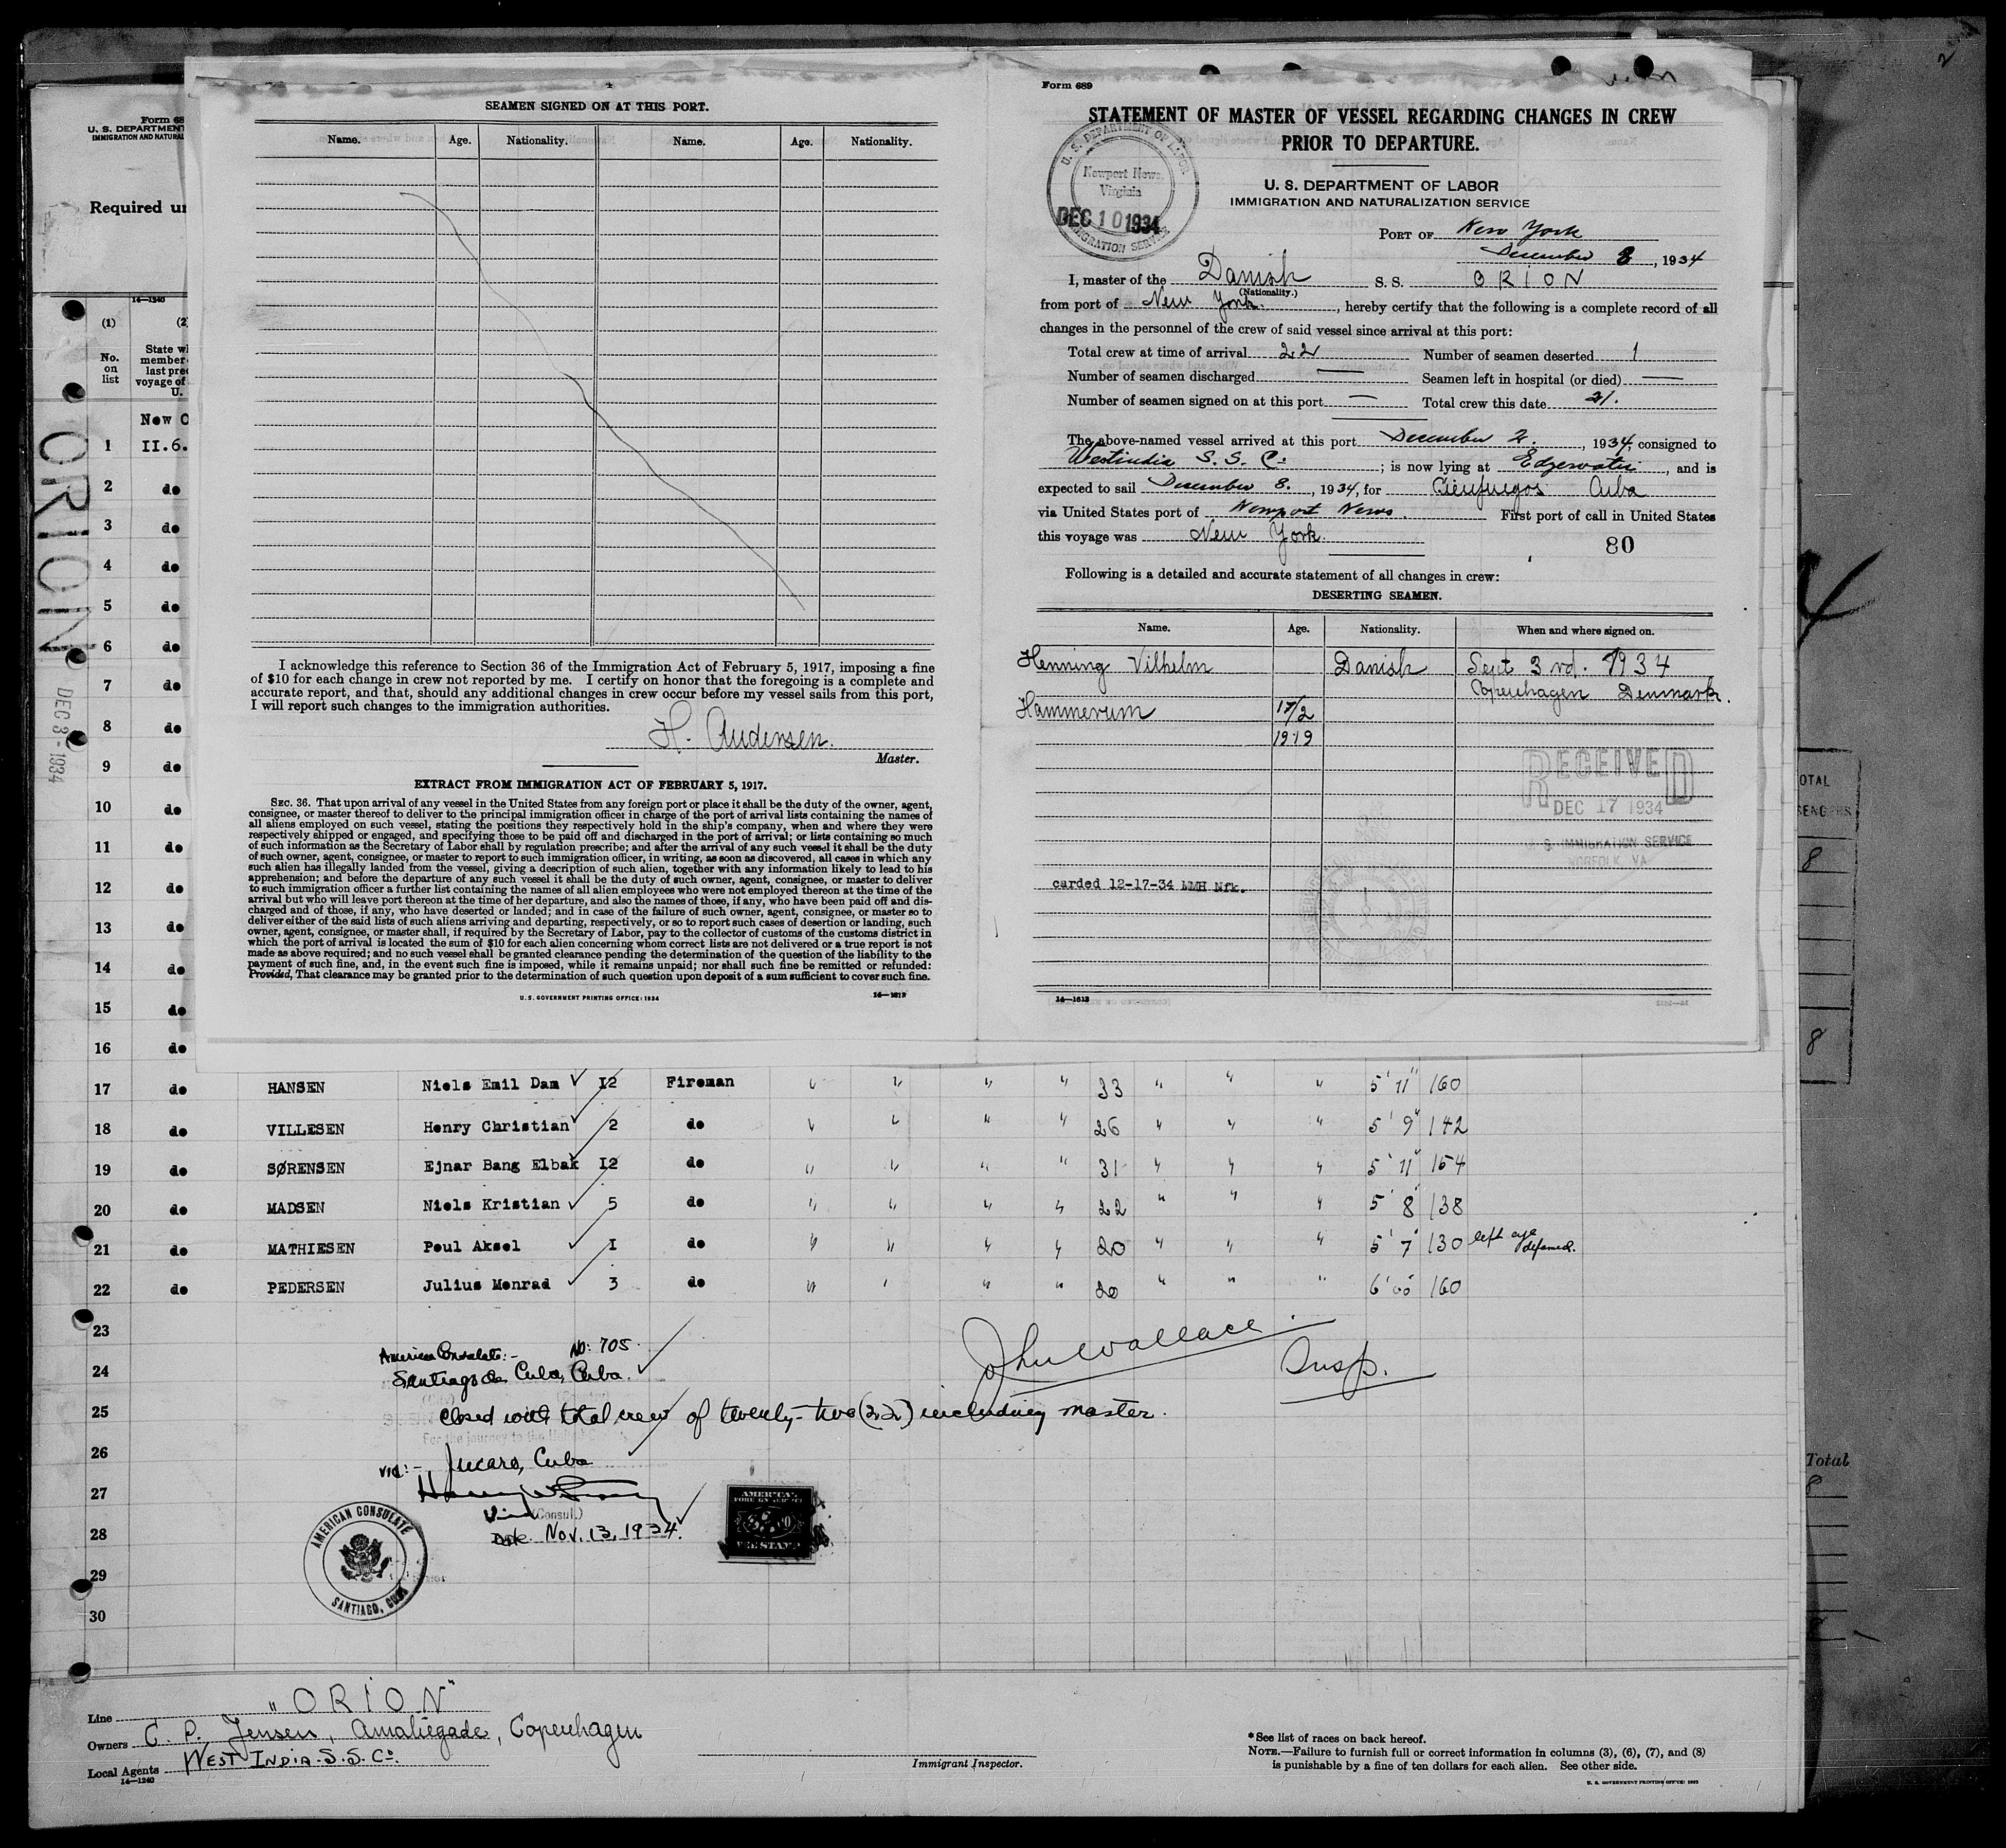 2
Form 689
SEAMEN SIGNED ON AT THIS PORT.
Name. Age. Nationality. Name. Age. Nationality.
I acknowledge this reference to Section 36 of the Immigration Act of February 5, 1917, imposing a fine
of $10 for each change in crew not reported by me. I certify on honor that the foregoing is a complete and
accurate report, and that, should any additional changes in crew occur before my vessel sails from this port,
I will report such changes to the immigration authorities.
H. Andersen.
Master.
EXTRACT FROM IMMIGRATION ACT OF FEBRUARY 5, 1917.
SEC. 36. That upon arrival of any vessel in the United States from any foreign port or place it shall be the duty of the owner, agent,
consignee, or master thereof to deliver to the principal immigration officer in charge of the port of arrival lists containing the names of
all aliens employed on such vessel, stating the positions they respectively hold in the ship's company, when and where they were
respectively shipped or engaged, and specifying those to be paid off and discharged in the port of arrival; or lists containing so much
of such information as the Secretary of Labor shall by regulation prescribe; and after the arrival of any such vessel it shall be the duty
of such owner, agent, consignee, or master to report to such immigration officer, in writing, as soon as discovered, all cases in which any
such alien has illegally landed from the vessel, giving a description of such alien, together with any information likely to lead to his
apprehension; and before the departure of any such vessel it shall be the duty of such owner, agent, consignee, or master to deliver
to such immigration officer a further list containing the names of all alien employees who were not employed thereon at the time of the
arrival but who will leave port thereon at the time of her departure, and also the names of those, if any, who have been paid off and dis-
charged and of those, if any, who have deserted or landed; and in case of the failure of such owner, agent, consignee, or master so to
deliver either of the said lists of such aliens arriving and departing, respectively, or so to report such cases of desertion or landing, such
owner, agent, consignee, or master shall, if required by the Secretary of Labor, pay to the collector of customs of the customs district in
which the port of arrival is located the sum of $10 for each alien concerning whom correct lists are not delivered or a true report is not
made as above required; and no such vessel shall be granted clearance pending the determination of the question of the liability to the
payment of such fine, and, in the event such fine is imposed, while it remains unpaid; nor shall such fine be remitted or refunded:
Provided, That clearance may be granted prior to the determination of such question upon deposit of a sum sufficient to cover such fine.
U. S. GOVERNMENT PRINTING OFFICE: 1934 14—1613
STATEMENT OF MASTER OF VESSEL REGARDING CHANGES IN CREW
PRIOR TO DEPARTURE.
U. S. DEPARTMENT OF LABOR
IMMIGRATION AND NATURALIZATION SERVICE
U. S. DEPARTMENT OF LABOR
Newport News,
Virginia
DEC 10 1934
IMMIGRATION SERVICE
PORT OF New York
December 8, 1934
I, master of the Danish S. S. ORION
(Nationality.)
from port of New York., hereby certify that the following is a complete record of all
changes in the personnel of the crew of said vessel since arrival at this port:
Total crew at time of arrival 22 Number of seamen deserted 1
Number of seamen discharged — Seamen left in hospital (or died) —
Number of seamen signed on at this port — Total crew this date 21.
The above-named vessel arrived at this port December 2., 1934, consigned to
Westindia S. S. Co; is now lying at Edgewater, and is
expected to sail December 8., 1934, for Cienfuegos Cuba
via United States port of Newport News. First port of call in United States
this voyage was New York.
80
Following is a detailed and accurate statement of all changes in crew:
DESERTING SEAMEN.
Name. Age. Nationality. When and where signed on.
Henning Vilhelm Danish Sept 3rd. 1934
Copenhagen Denmark.
Hammerum 17/2
1919
RECEIVED
DEC 17 1934
U. S. IMMIGRATION SERVICE
NORFOLK VA
carded 12-17-34 MMH Nfk.
14—1613
Form 68
U. S. DEPARTMENT
IMMIGRATION AND NATURAL
Required un
14—1240
(1) (2)
No. on list
State wh
member
last prec
voyage of
U.
ORION
DEC 3 - 1934
New O
1 II.6.
2 do
3 do
4 do
5 do
6 do
7 do
8 do
9 do
10 do
11 do
12 do
13 do
14 do
15 do
16 do
17 do HANSEN Niels Emil Dam 12 Fireman " " " " 33 " " " 5' 11" 160
18 do VILLESEN Henry Christian 2 do " " " " 26 " " " 5' 9" 142
19 do SØRENSEN Ejnar Bang Elbak 12 do " " " " 31 " " " 5' 11" 154
20 do MADSEN Niels Kristian 5 do " " " " 22 " " " 5' 8" 138
21 do MATHIESEN Poul Aksel I do " " " " 20 " " " 5' 7" 130 left eye deformed.
22 do PEDERSEN Julius Monrad 3 do " " " " 20 " " " 6' 00" 160
23
24
25
26
27
28
29
30
American Consulate:- No: 705
Santiago de Cuba, Cuba.
John Wallace
Insp.
Closed with total crew of twenty-two (22) including master.
via:- Jucaro, Cuba
(Consul)
Date Nov. 13, 1934.
AMERICAN CONSULATE
SANTIAGO, CUBA
AMERICAN
FOREIGN SERVICE
FEE STAMP
OTAL
8
8
Total
8
Line "ORION"
Owners C. P. Jensen, Amaliegade, Copenhagen
Local Agents WEST INDIA. S. S. Co.
14—1240
Immigrant Inspector.
* See list of races on back hereof.
NOTE.—Failure to furnish full or correct information in columns (3), (6), (7), and (8)
is punishable by a fine of ten dollars for each alien. See other side.